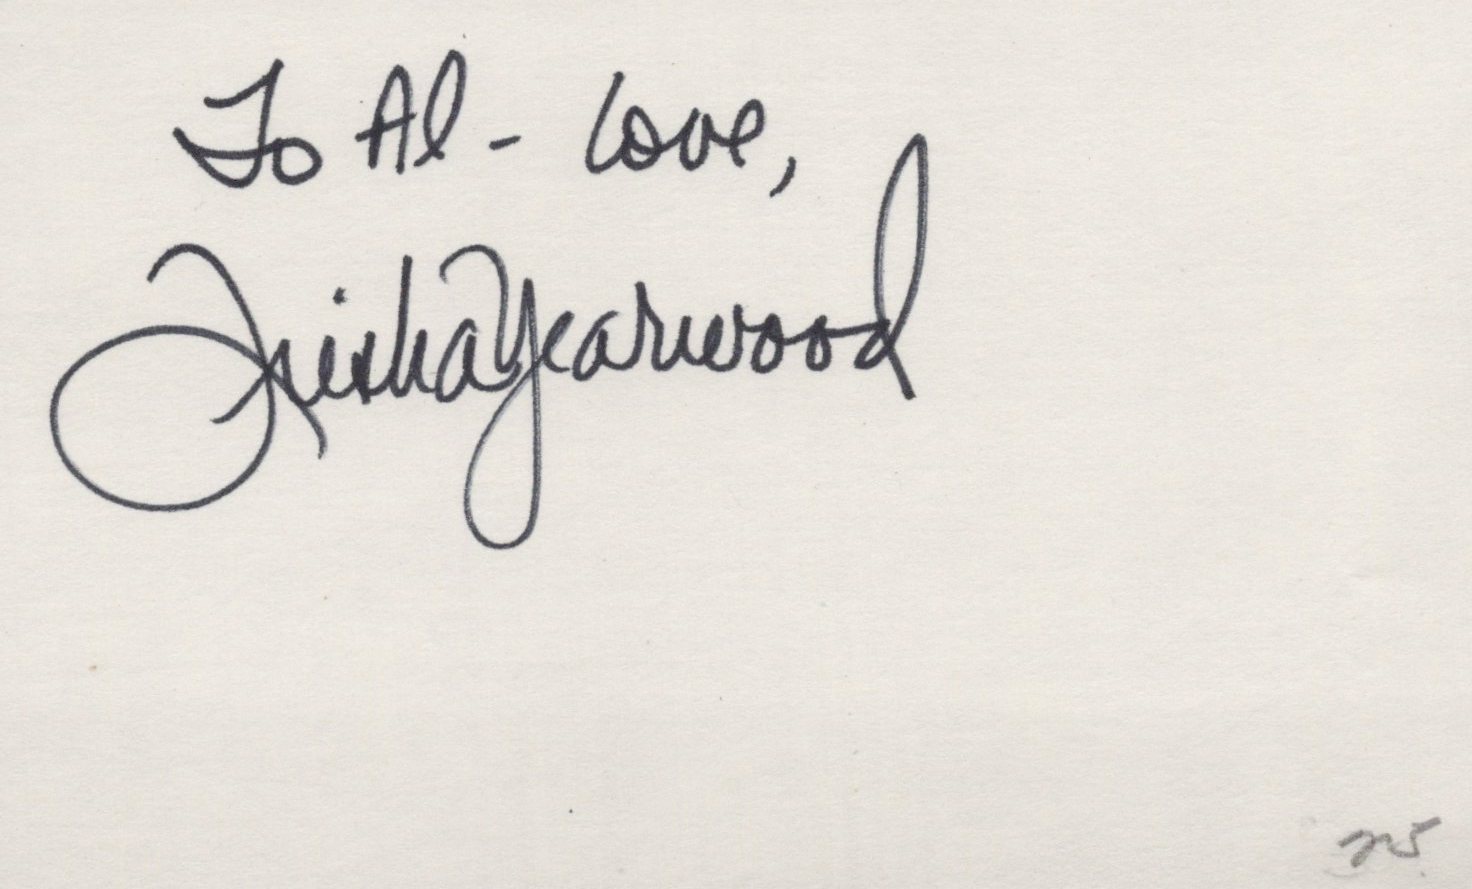 To Al - Love,
Trisha Yearwood
25